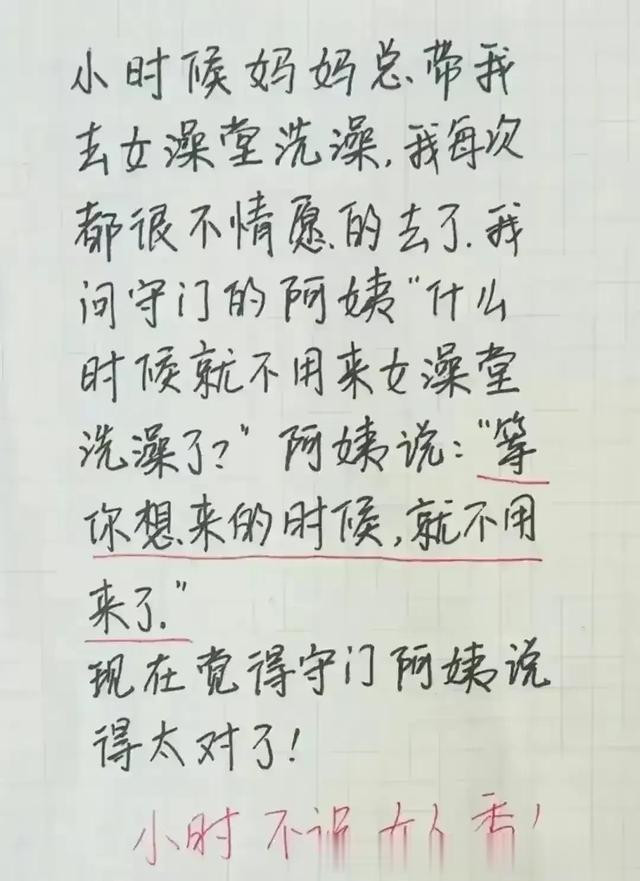 小时候妈妈总带我
去女澡堂洗澡,我每次
都很不情愿的去了.我
问守门的阿姨"什么
时候就不用来女澡堂
洗澡了?"阿姨说:"等
你想来的时候,就不用
来了."
现在觉得守门阿姨说
得太对了!
小时不识女人香!